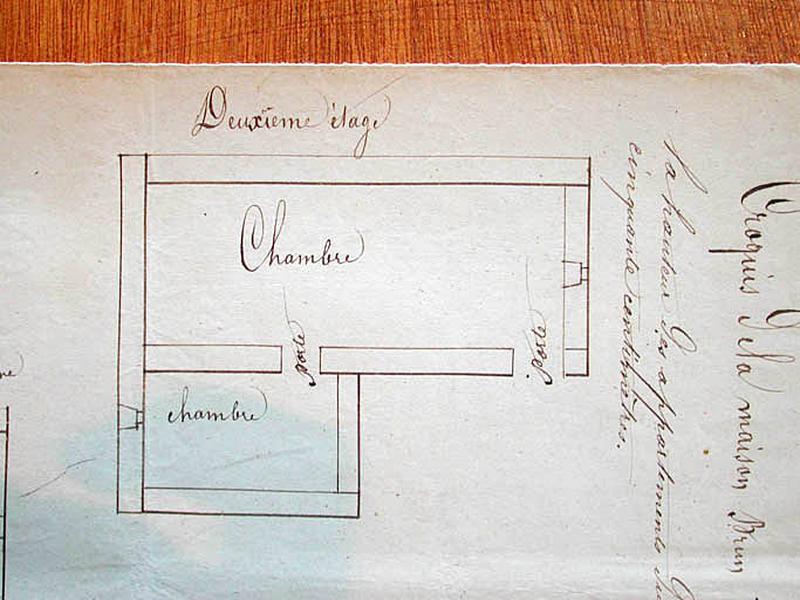 Deuxième étage
Chambre
Porte
Porte
chambre
Croquis de la maison Brun
la hauteur des appartements
cinquante centimètres.